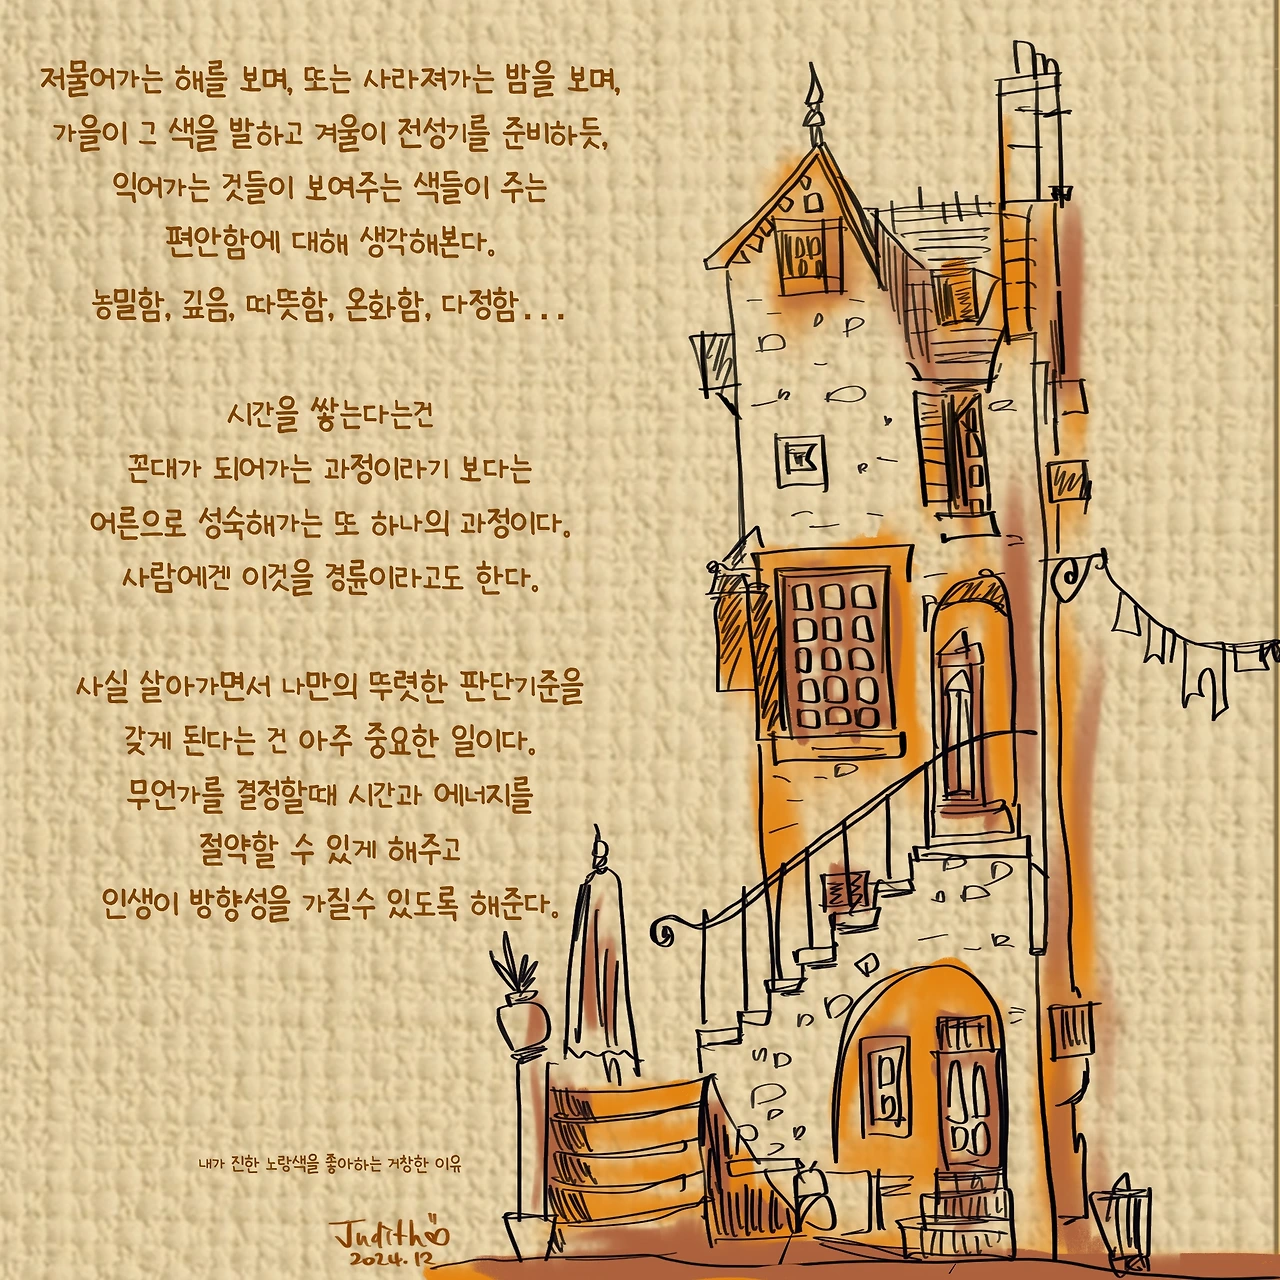 저물어가는 해를 보며, 또는 사라져가는 밤을 보며,
가을이 그 색을 발하고 겨울이 전성기를 준비하듯,
익어가는 것들이 보여주는 색들이 주는
편안함에 대해 생각해본다.
농밀함, 깊음, 따뜻함, 온화함, 다정함...
시간을 쌓는다는건
꼰대가 되어가는 과정이라기 보다는
어른으로 성숙해가는 또 하나의 과정이다.
사람에겐 이것을 경륜이라고도 한다.
사실 살아가면서 나만의 뚜렷한 판단기준을
갖게 된다는 건 아주 중요한 일이다.
무언가를 결정할때 시간과 에너지를
절약할 수 있게 해주고
인생이 방향성을 가질수 있도록 해준다.
내가 진한 노랑색을 좋아하는 거창한 이유
Judith
2024.12